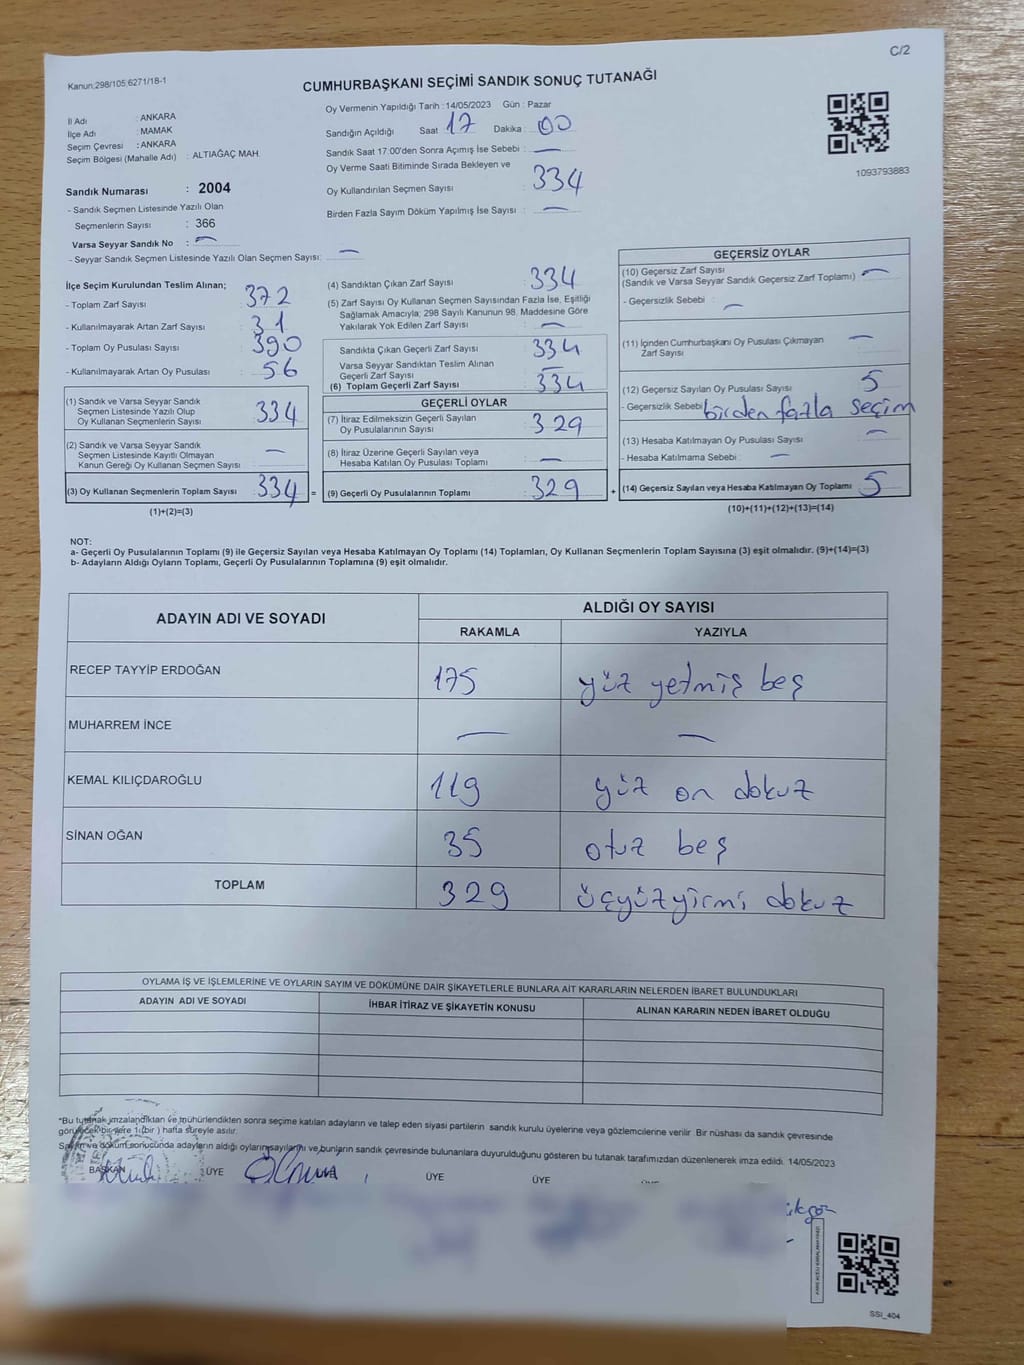 C/2
Kanun:298/105;6271/18-1
CUMHURBAŞKANI SEÇİMİ SANDIK SONUÇ TUTANAĞI
İl Adı : ANKARA
İlçe Adı : MAMAK
Seçim Çevresi : ANKARA
Seçim Bölgesi (Mahalle Adı) : ALTIAĞAÇ MAH.
Sandık Numarası : 2004
- Sandık Seçmen Listesinde Yazılı Olan
Seçmenlerin Sayısı : 366
Varsa Seyyar Sandık No : —
- Seyyar Sandık Seçmen Listesinde Yazılı Olan Seçmen Sayısı: —
Oy Vermenin Yapıldığı Tarih : 14/05/2023 Gün : Pazar
Sandığın Açıldığı Saat 17 Dakika : 00
Sandık Saat 17:00'den Sonra Açımış İse Sebebi : —
Oy Verme Saati Bitiminde Sırada Bekleyen ve
Oy Kullandırılan Seçmen Sayısı 334
Birden Fazla Sayım Döküm Yapılmış İse Sayısı : —
1093793883
İlçe Seçim Kurulundan Teslim Alınan;
- Toplam Zarf Sayısı : 372
- Kullanılmayarak Artan Zarf Sayısı : 31
- Toplam Oy Pusulası Sayısı : 390
- Kullanılmayarak Artan Oy Pusulası : 56
(1) Sandık ve Varsa Seyyar Sandık
Seçmen Listesinde Yazılı Olup
Oy Kullanan Seçmenlerin Sayısı : 334
(2) Sandık ve Varsa Seyyar Sandık
Seçmen Listesinde Kayıtlı Olmayan
Kanun Gereği Oy Kullanan Seçmen Sayısı : —
(3) Oy Kullanan Seçmenlerin Toplam Sayısı : 334 =
(1)+(2)=(3)
(4) Sandıktan Çıkan Zarf Sayısı : 334
(5) Zarf Sayısı Oy Kullanan Seçmen Sayısından Fazla İse, Eşitliği
Sağlamak Amacıyla; 298 Sayılı Kanunun 98. Maddesine Göre
Yakılarak Yok Edilen Zarf Sayısı : —
Sandıkta Çıkan Geçerli Zarf Sayısı : 334
Varsa Seyyar Sandıktan Teslim Alınan
Geçerli Zarf Sayısı : —
(6) Toplam Geçerli Zarf Sayısı : 334
GEÇERLİ OYLAR
(7) İtiraz Edilmeksizin Geçerli Sayılan
Oy Pusulalarının Sayısı : 329
(8) İtiraz Üzerine Geçerli Sayılan veya
Hesaba Katılan Oy Pusulası Toplamı : —
(9) Geçerli Oy Pusulalarının Toplamı : 329 +
GEÇERSİZ OYLAR
(10) Geçersiz Zarf Sayısı
(Sandık ve Varsa Seyyar Sandık Geçersiz Zarf Toplamı) : —
- Geçersizlik Sebebi : —
(11) İçinden Cumhurbaşkanı Oy Pusulası Çıkmayan
Zarf Sayısı : —
(12) Geçersiz Sayılan Oy Pusulası Sayısı : 5
- Geçersizlik Sebebi birden fazla seçim
(13) Hesaba Katılmayan Oy Pusulası Sayısı : —
- Hesaba Katılmama Sebebi : —
(14) Geçersiz Sayılan veya Hesaba Katılmayan Oy Toplamı : 5
(10)+(11)+(12)+(13)=(14)
NOT:
a- Geçerli Oy Pusulalarının Toplamı (9) ile Geçersiz Sayılan veya Hesaba Katılmayan Oy Toplamı (14) Toplamları, Oy Kullanan Seçmenlerin Toplam Sayısına (3) eşit olmalıdır. (9)+(14)=(3)
b- Adayların Aldığı Oyların Toplamı, Geçerli Oy Pusulalarının Toplamına (9) eşit olmalıdır.
ADAYIN ADI VE SOYADI ALDIĞI OY SAYISI
RAKAMLA YAZIYLA
RECEP TAYYİP ERDOĞAN 175 yüz yetmiş beş
MUHARREM İNCE — —
KEMAL KILIÇDAROĞLU 119 yüz on dokuz
SİNAN OĞAN 35 otuz beş
TOPLAM 329 üçyüzyirmi dokuz
OYLAMA İŞ VE İŞLEMLERİNE VE OYLARIN SAYIM VE DÖKÜMÜNE DAİR ŞİKAYETLERLE BUNLARA AİT KARARLARIN NELERDEN İBARET BULUNDUKLARI
ADAYIN ADI VE SOYADI İHBAR İTİRAZ VE ŞİKAYETİN KONUSU ALINAN KARARIN NEDEN İBARET OLDUĞU
"Bu tutanak imzalandıktan ve mühürlendikten sonra seçime katılan adayların ve talep eden siyasi partilerin sandık kurulu üyelerine veya gözlemcilerine verilir .Bir nüshası da sandık çevresinde
görülecek bir yere 1 (bir ) hafta süreyle asılır.
Sayım ve döküm sonucunda adayların aldığı oyların sayılarını ve bunların sandık çevresinde bulunanlara duyurulduğunu gösteren bu tutanak tarafımızdan düzenlenerek imza edildi. 14/05/2023
BAŞKAN ÜYE ÜYE ÜYE
SSI_404